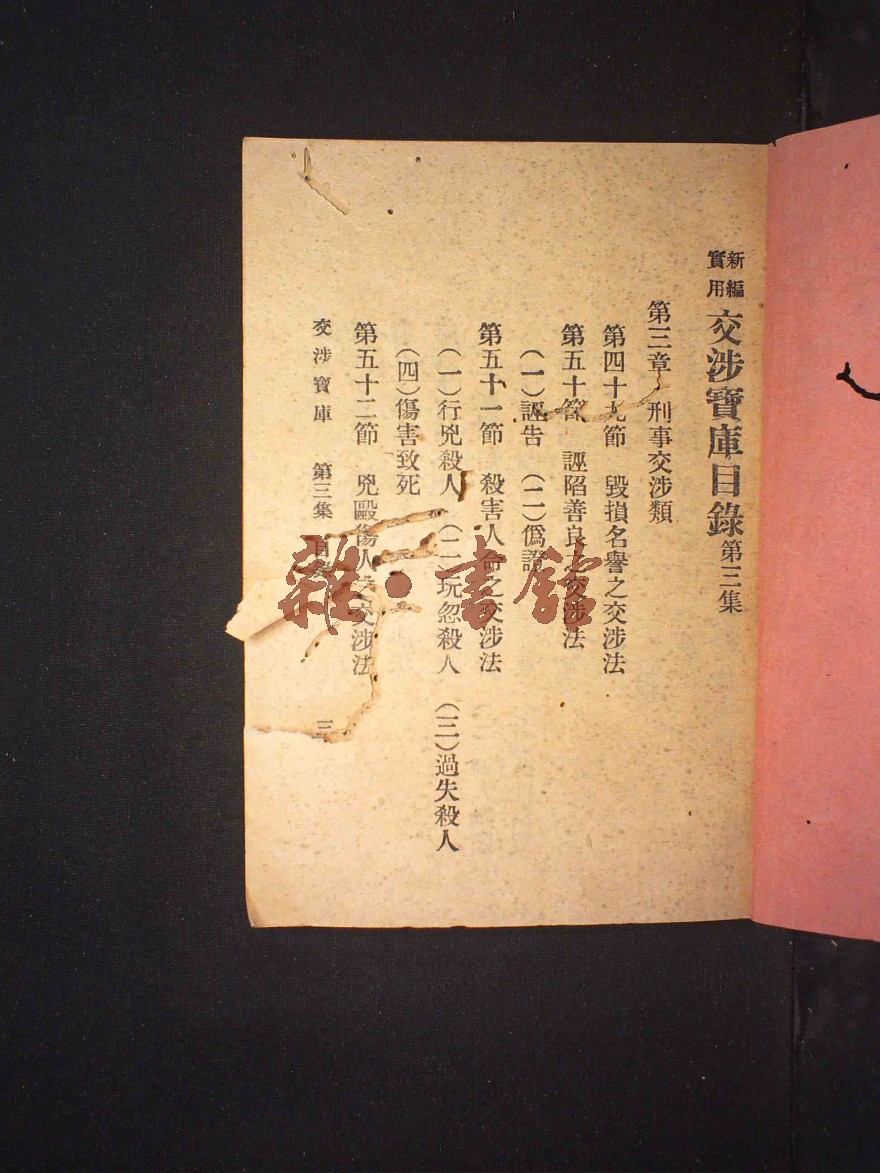 新編實用交涉寶庫目錄第三集
第三章 刑事交涉類
第四十九節 毀損名譽之交涉法
第五十節 誣陷善良之交涉法
(一)誣告 (二)僞證
第五十一節 殺害人命之交涉法
(一)行兇殺人 (二)玩忽殺人 (三)過失殺人
(四)傷害致死
第五十二節 兇毆傷人之交涉法
交涉寶庫 第三集 目錄
雜·書館